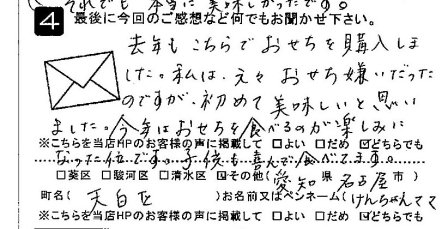 それでも本当に美味しかったです。
4 最後に今回のご感想など何でもお聞かせ下さい。
去年もこちらでおせちを購入しま
した。私は、元々おせち嫌いだった
のですが、初めて美味しいと思い
ました。今年はおせちを食べるのが楽しみに
※こちらを当店HPのお客様の声に掲載して □よい □だめ ☑どちらでも
なった位です。子供も喜んで食べてます。
□葵区 □駿河区 □清水区 ☑その他(愛知 県 名古屋 市)
町名( 天白区 )お名前又はペンネーム(けんちゃんママ
※こちらを当店HPのお客様の声に掲載して □よい □だめ ☑どちらでも